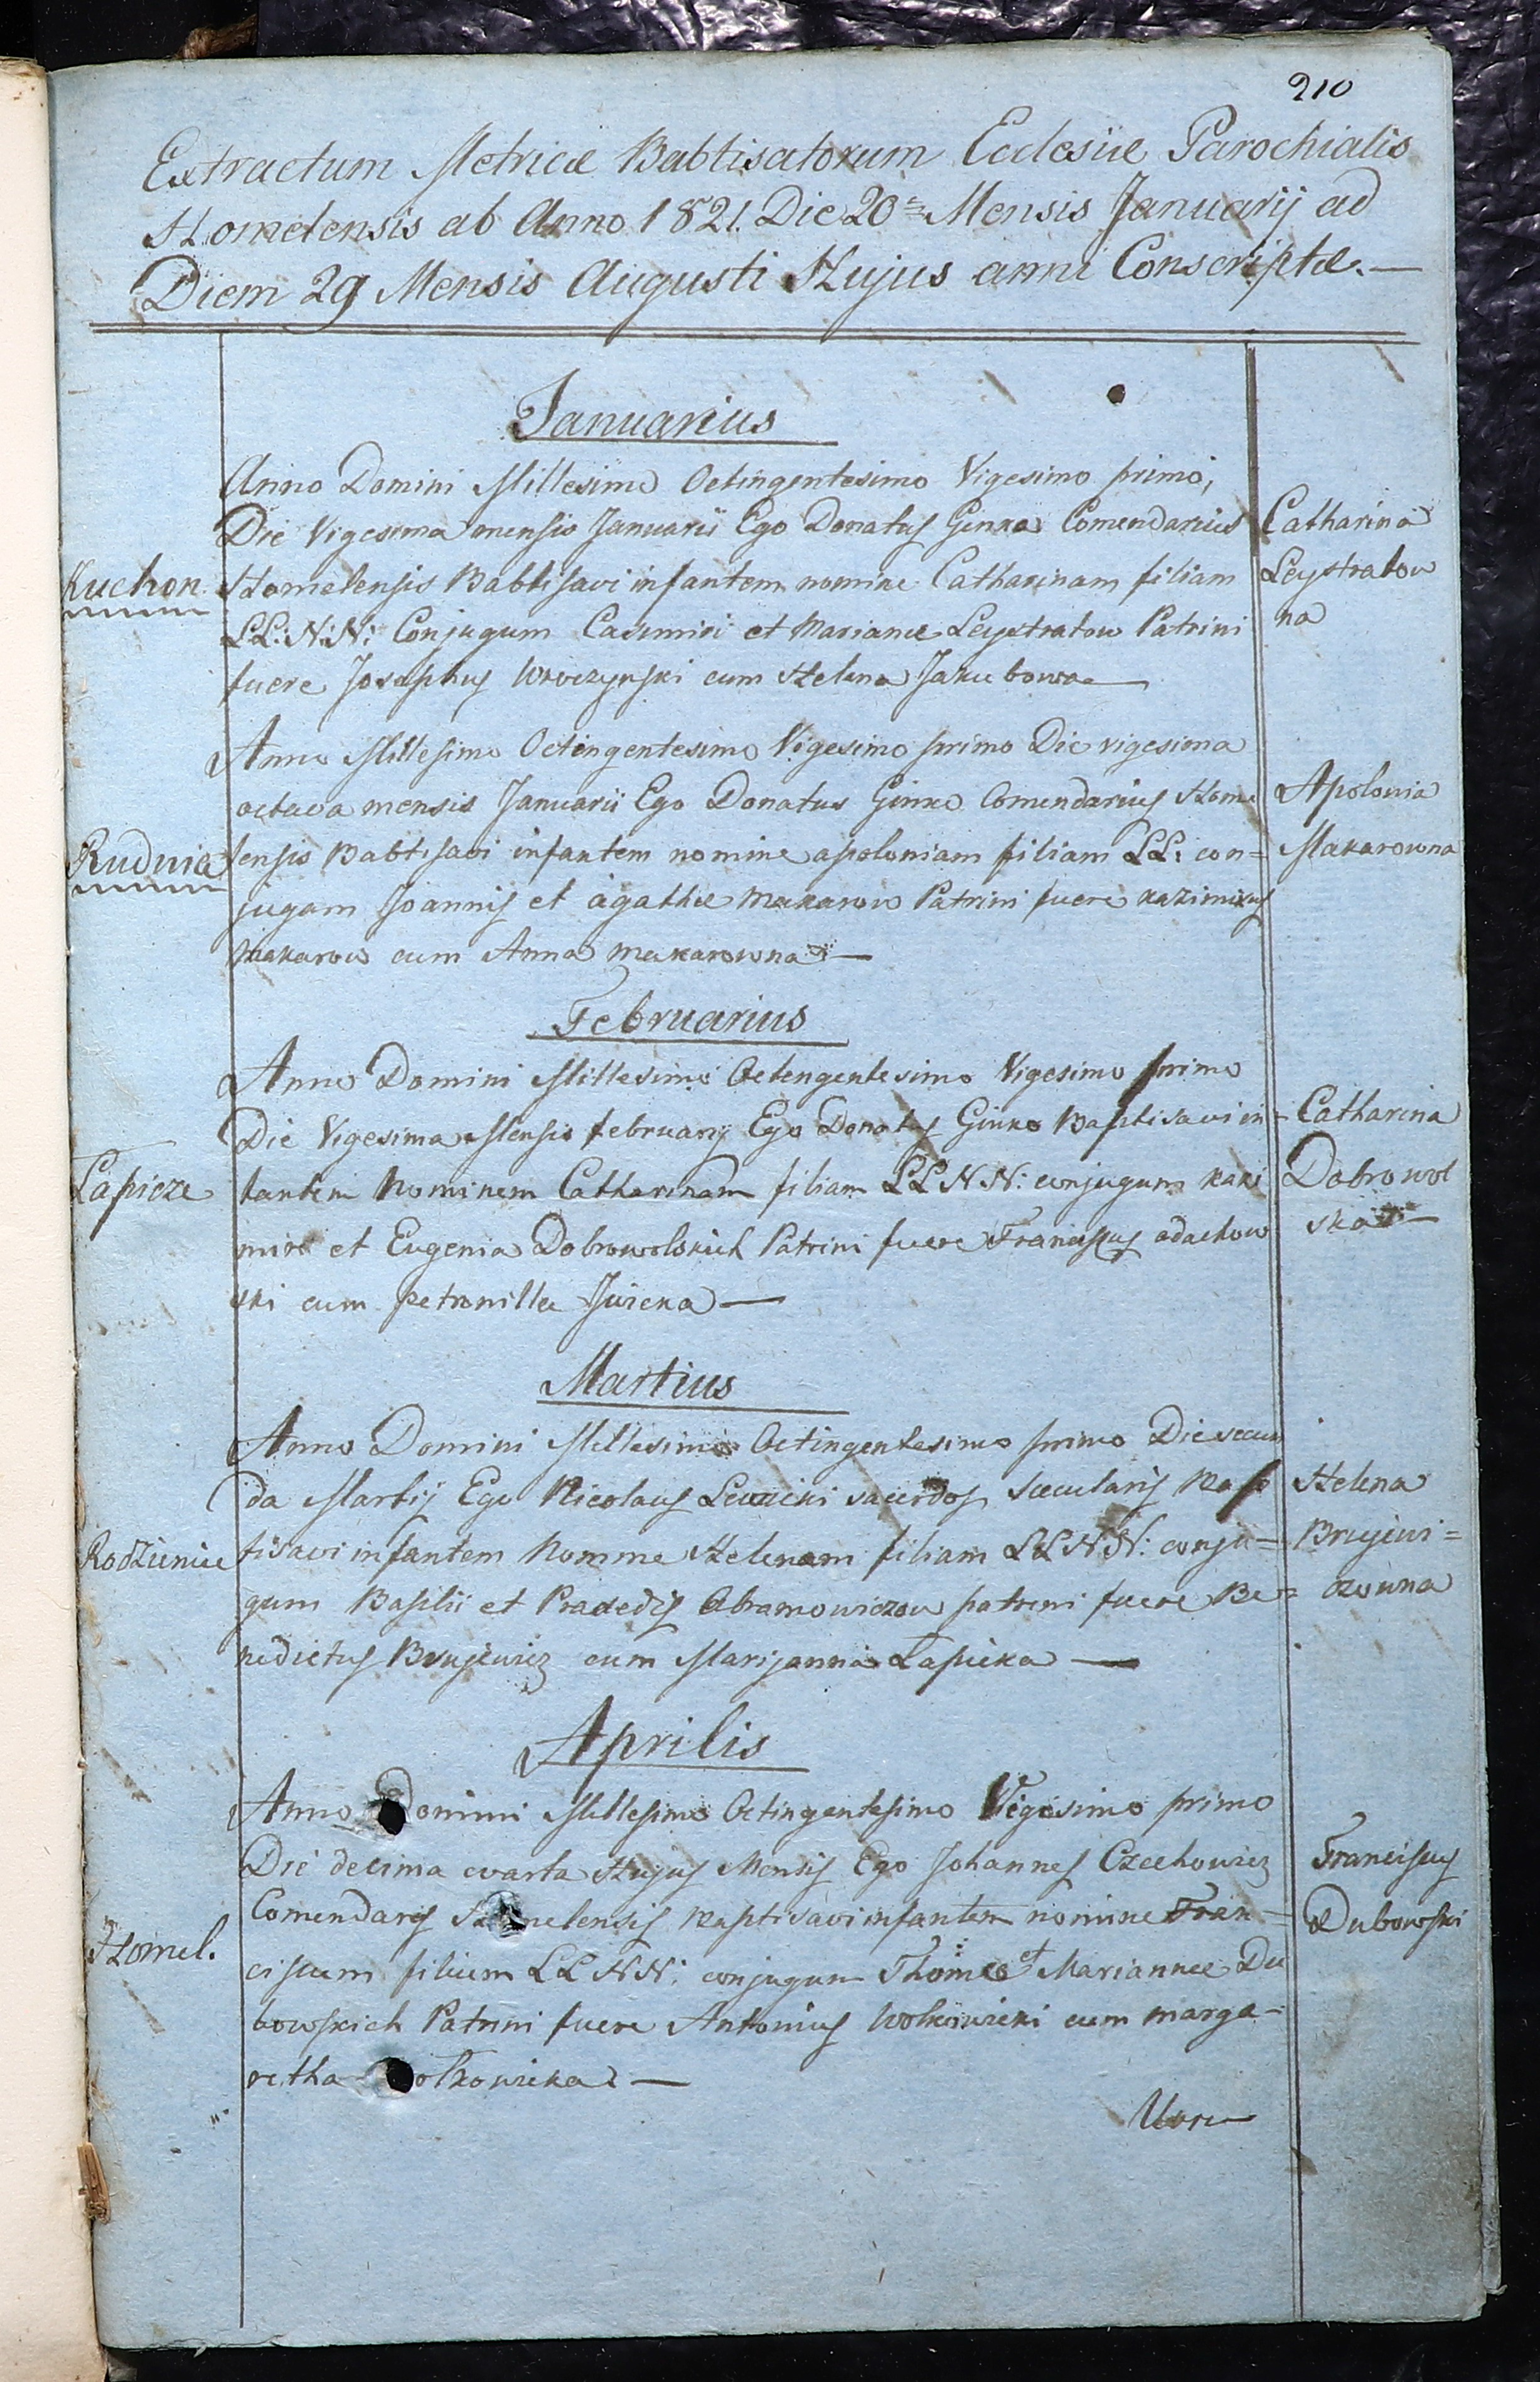 210
Extractum Metricæ Babtisatorum Eclesiæ Parochialis
Homelensis ab Anno 1821. Die 20 Mensis Januarij ad
Diem 29 Mensis Augusti Hujus anni Conscriptæ.—
Januarius
Anno Domini Millesimo Octingentesimo Vigesimo primo,
Die Vigesima mensis Januarii Ego Donatus Ginko Comendarius
Homelensis Babtisavi infantem nomine Catharinam filiam
LL: NN: Conjugum Casimiri et Mariane Leystratow Patrini
fuere Josephus Wroczynski cum Helena Jakubowa—
Kuchon
Catharina
Leystratow
na
Anno Millesimo Octingentesimo Vigesimo primo Die vigesima
octava mensis Januarii Ego Donatus Ginko Comendarius Home
lensis Babtisavi infantem nomine apoloniam filiam LL: con=
jugam Joannis et agathæ Makarow Patrini fuere kazimirus
Makarow cum Anna Makarowna—
Rudnia
Apolonia
Makarowna
Februarius
Anno Domini Millesimo Octengentesimo Vigesimo primo
Die Vigesima Mensis februarij Ego Donatus Ginko Baptisavi in=
tantem Nominem Catharinam filiam LL NN: conjugum kazi
miri et Eugenia Dobrowolskich Patrini fuere Franciscus adachow
ski cum petronilla Juicka—
Lapicze
Catharina
Dobrowol
ska—
Martius
Anno Domini Millesimo Octingentesimo primo Die secun
da Martij Ego Nicolaus Lewicki sacerdos sæcularis Bap
tisavi infantem Nomine Helenam filiam LL NN: conju=
gum Basilii et Praxedis Abramowiczow patrini fuere Be=
nedictus Brujewicz cum Marijanna Lapicka—
Rodzienice
Helena
Brujewi=
czowna
Aprilis
Anno Domini Millesimo Octingentesimo Vigesimo primo
Die decima cvarta Hujus Mensis Ego Johannes Czechowicz
Comendarys Homelensis Baptisavi infantem nomine Fran=
ciscum filium LL NN: conjugum Thomæ et Mariannæ Du
bowskich Patrini fuere Antonius Wolkowicki cum marga=
retha olkowicka—
Homel.
Franciscus
Dubowski